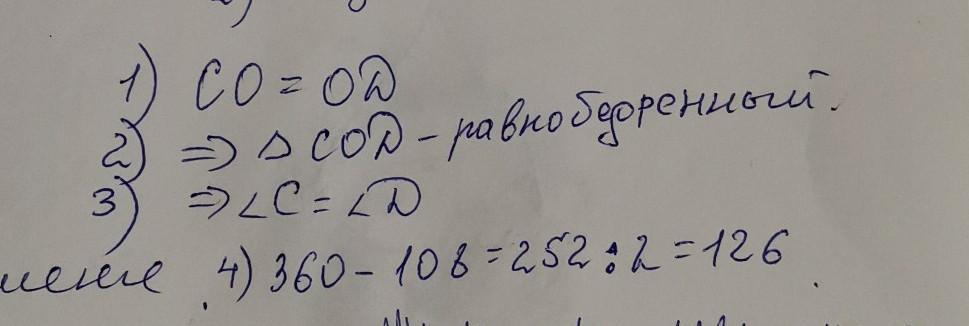 1) CO = OD
2) => △ COD - равнобедренный.
3) => ∠C = ∠D
4) 360 - 108 = 252 : 2 = 126